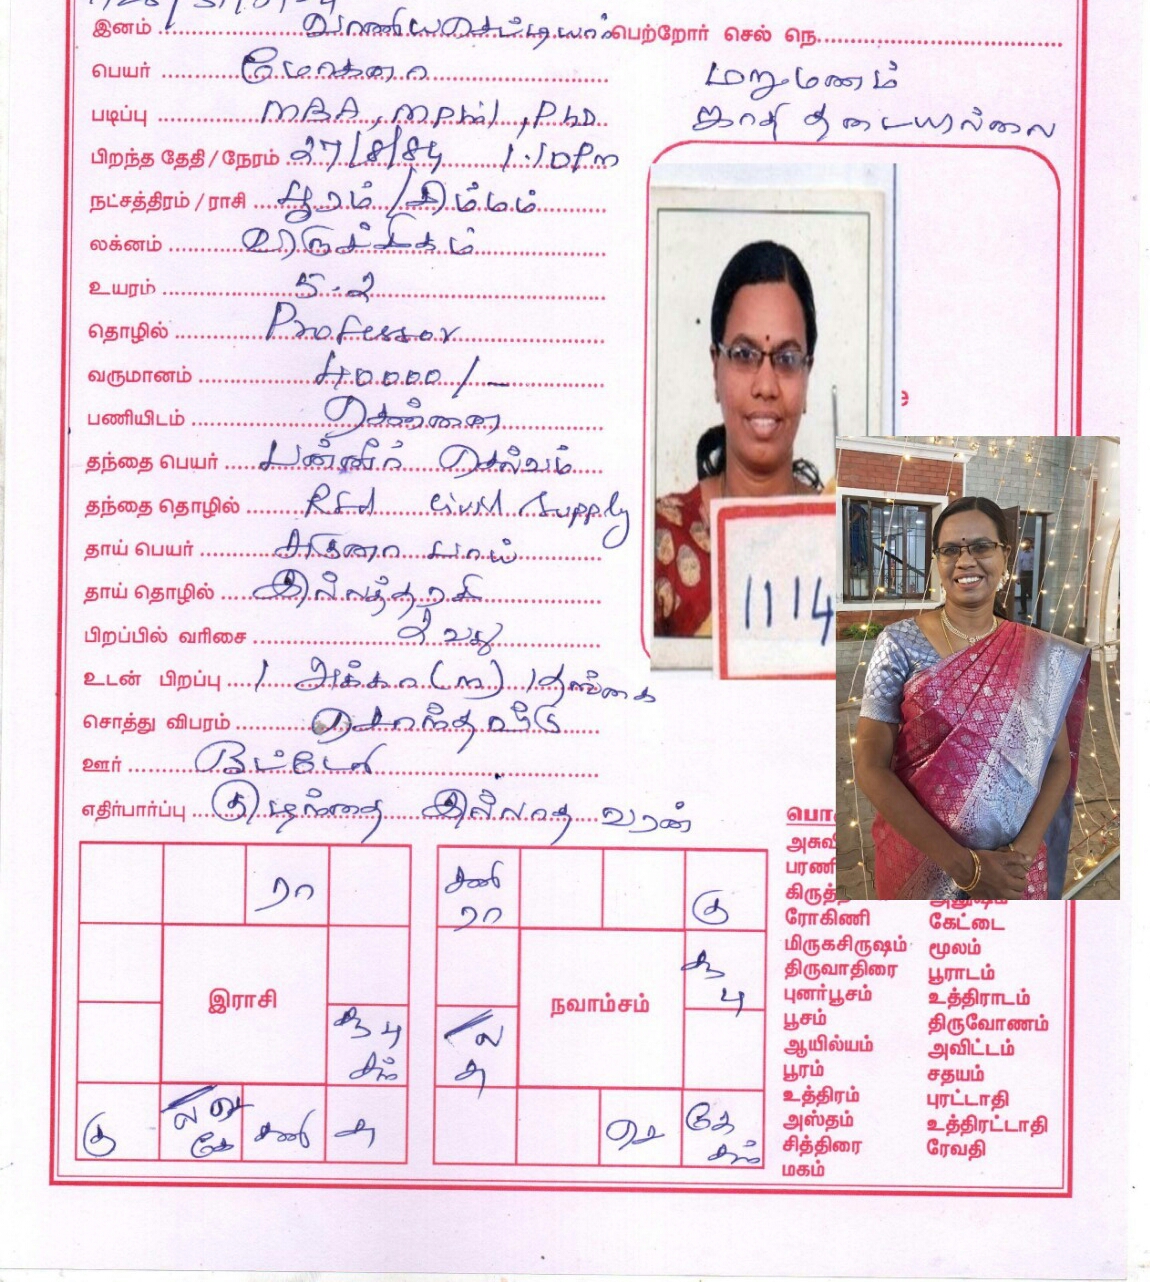 இனம் வாணிய செட்டியார் பெற்றோர் செல் நெ.
பெயர் மோகனா
மறுமணம்
படிப்பு MBA, MPhil, PhD
ஜாதி தடையில்லை
பிறந்த தேதி / நேரம் 27/8/84 1.10Pm
நட்சத்திரம் / ராசி பூரம் / சிம்மம்
லக்னம் விருச்சிகம்
உயரம் 5.2
தொழில் Professor
வருமானம் 40000/-
பணியிடம் சென்னை
தந்தை பெயர் பன்னீர் செல்வம்
தந்தை தொழில் Rtd Civil Supply
தாய் பெயர் பாய்
தாய் தொழில் இல்லத்தரசி
பிறப்பில் வரிசை 2 வது
உடன் பிறப்பு 1 அக்கா (ம) 1 தங்கை
சொத்து விபரம் சொந்தவீடு
ஊர்
எதிர்பார்ப்பு குழந்தை இல்லாத வரன்
1114
ரா
சனி
ரா
கு
சூ
பு
இராசி
நவாம்சம்
சூ பு
சுக்
ல
ச
கு
ல செ
கே
சனி
ச
செ
கே
சுக்
ரோகிணி
மிருகசிருஷம்
திருவாதிரை
புனர்பூசம்
பூசம்
ஆயில்யம்
பூரம்
உத்திரம்
அஸ்தம்
சித்திரை
மகம்
கேட்டை
மூலம்
பூராடம்
உத்திராடம்
திருவோணம்
அவிட்டம்
சதயம்
புரட்டாதி
உத்திரட்டாதி
ரேவதி